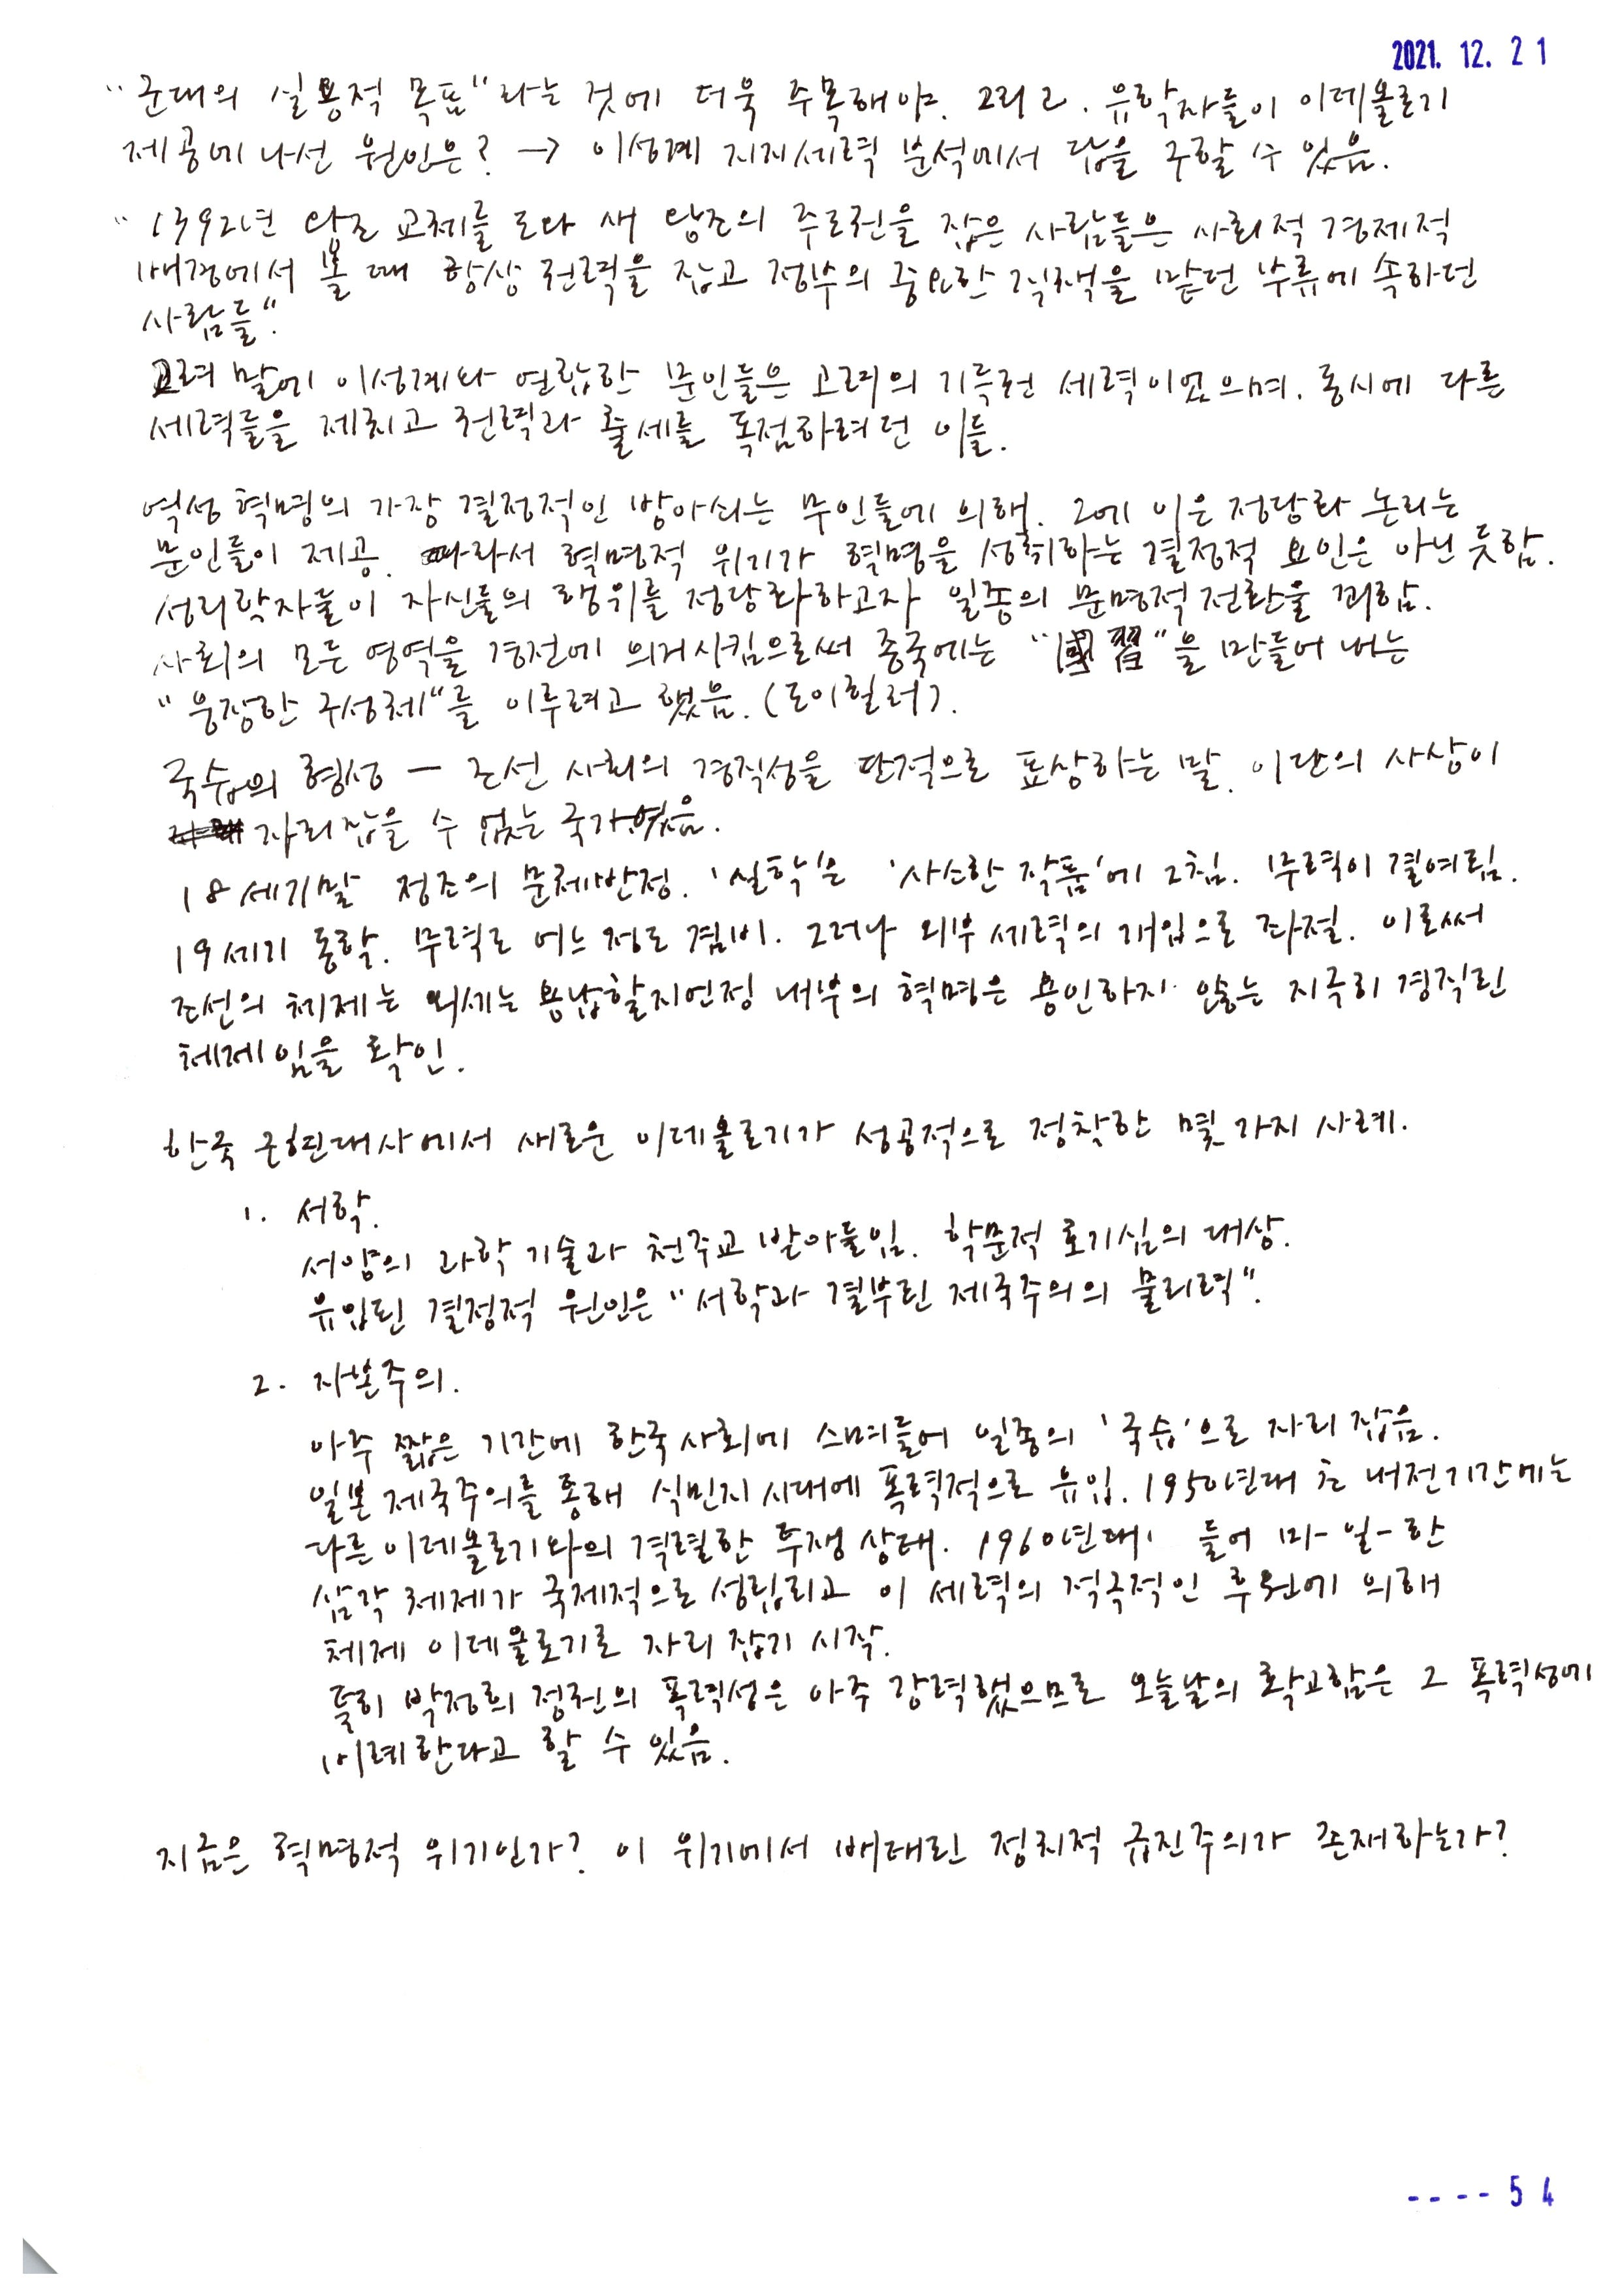 2021. 12. 21
"군대의 실용적 목표"라는 것에 더욱 주목해야. 그리고. 유학자들이 이데올로기
제공에 나선 원인은? → 이성계 지지세력 분석에서 답을 구할 수 있음.
"1392년 왕조 교체를 도와 새 왕조의 주도권을 잡은 사람들은 사회적 경제적
배경에서 볼 때 항상 권력을 잡고 정부의 중요한 직책을 맡던 부류에 속하던
사람들".
고려 말에 이성계와 연합한 문인들은 고려의 기득권 세력이었으며. 동시에 다른
세력들을 제치고 권력과 출세를 독점하려던 이들.
역성 혁명의 가장 결정적인 방아쇠는 무인들에 의해. 그에 이은 정당화 논리는
문인들이 제공. 따라서 혁명적 위기가 혁명을 성취하는 결정적 요인은 아닌 듯함.
성리학자들이 자신들의 행위를 정당화하고자 일종의 문명적 전환을 꾀함.
사회의 모든 영역을 경전에 의거시킴으로써 종국에는 "國習"을 만들어 내는
"웅장한 구성체"를 이루려고 했음. (도이힐러).
국습의 형성 — 조선 사회의 경직성을 단적으로 표상하는 말. 이단의 사상이
자리잡을 수 없는 국가였음.
18세기말 정조의 문체반정. '실학'은 '사소한 작품'에 그침. 무력이 결여됨.
19세기 동학. 무력도 어느 정도 겸비. 그러나 외부 세력의 개입으로 좌절. 이로써
조선의 체제는 외세는 용납할지언정 내부의 혁명은 용인하지 않는 지극히 경직된
체제임을 확인.
한국 근현대사에서 새로운 이데올로기가 성공적으로 정착한 몇 가지 사례.
1. 서학.
서양의 과학 기술과 천주교 받아들임. 학문적 호기심의 대상.
유입된 결정적 원인은 "서학과 결부된 제국주의의 물리력".
2. 자본주의.
아주 짧은 기간에 한국 사회에 스며들어 일종의 '국습'으로 자리 잡음.
일본 제국주의를 통해 식민지 시대에 폭력적으로 유입. 1950년대 초 내전기간에는
다른 이데올로기와의 격렬한 투쟁 상태. 1960년대 들어 미-일-한
삼각 체제가 국제적으로 성립되고 이 세력의 적극적인 후원에 의해
체제 이데올로기로 자리 잡기 시작.
특히 박정희 정권의 폭력성은 아주 강력했으므로 오늘날의 확고함은 그 폭력성에
비례한다고 할 수 있음.
지금은 혁명적 위기인가? 이 위기에서 배태된 정치적 급진주의가 존재하는가?
----54